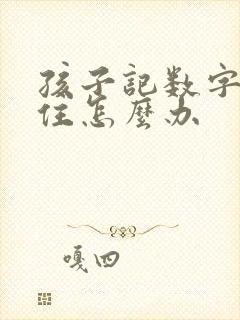 孩子記数字
住怎麼办
嘎四